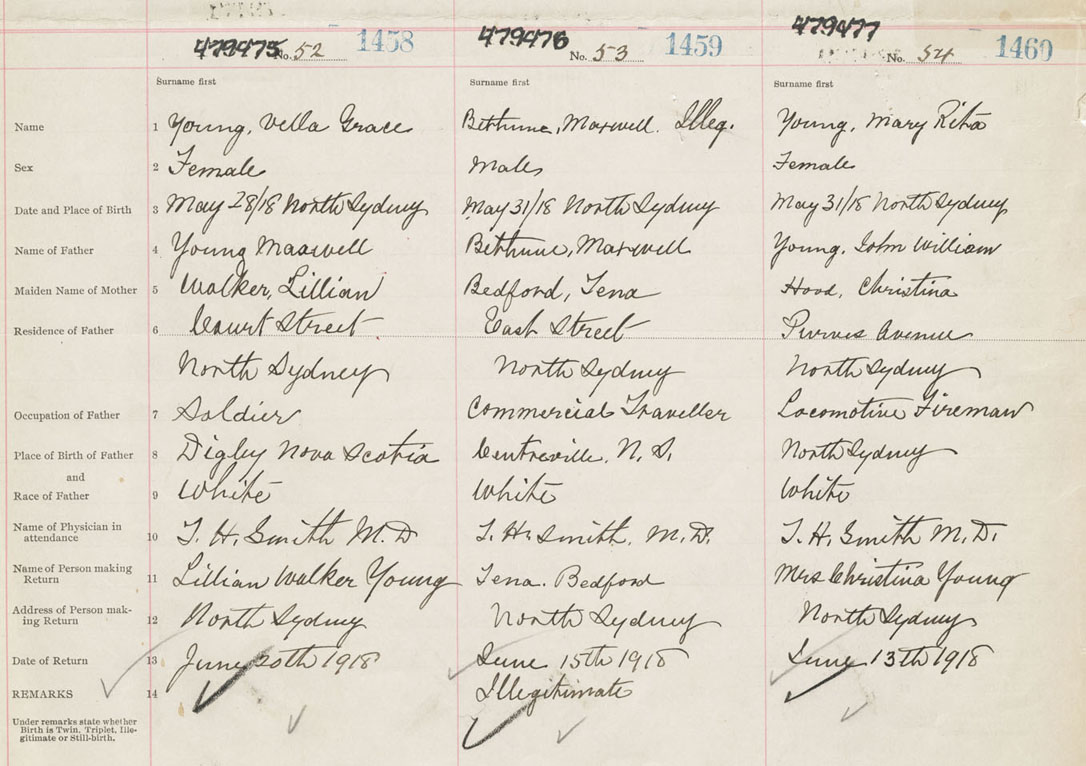 479475 No. 52 1458 479476 No. 53 1459 479477 No. 54 1460
Surname first Surname first Surname first
Name 1 Young, Vella Grace Bethune, Maxwell. Illeg. Young, Mary Rita
Sex 2 Female Male Female
Date and Place of Birth 3 May 28/18 North Sydney May 31/18 North Sydney May 31/18 North Sydney
Name of Father 4 Young Maxwell Bethune, Maxwell Young, John William
Maiden Name of Mother 5 Walker, Lillian Bedford, Tena Hood, Christina
Residence of Father 6 Court Street East Street Purves Avenue
North Sydney North Sydney North Sydney
Occupation of Father 7 Soldier Commercial Traveller Locomotive Fireman
Place of Birth of Father 8 Digby Nova Scotia Centreville, N.S. North Sydney
and
Race of Father 9 White White White
Name of Physician in
attendance 10 T. H. Smith M.D T. H. Smith, M.D. T. H. Smith M.D.
Name of Person making
Return 11 Lillian Walker Young Tena. Bedford Mrs Christina Young
Address of Person mak-
ing Return 12 North Sydney North Sydney North Sydney
Date of Return 13 June 20th 1918 June 15th 1918 June 13th 1918
REMARKS 14 Illegitimate
Under remarks state whether
Birth is Twin, Triplet, Ille-
gitimate or Still-birth.